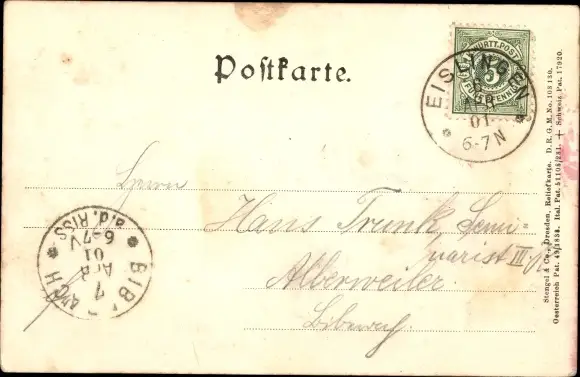 Postkarte.
K. WÜRTT. POST
5
FÜNF PFENNIG
EISLINGEN
6
APR
01
6-7N
Herrn
Hans Trunk, Semi-
narist III.
Alberweiler.
BIBERACH
a.d. RISS
6-7V
01
APR
7
Stengel & Co., Dresden, Reliefkarte. D. R. G. M. No. 108 130.
Oesterreich Pat. 49/1838. Ital. Pat. 51108/281. + Schweiz. Pat. 17920.